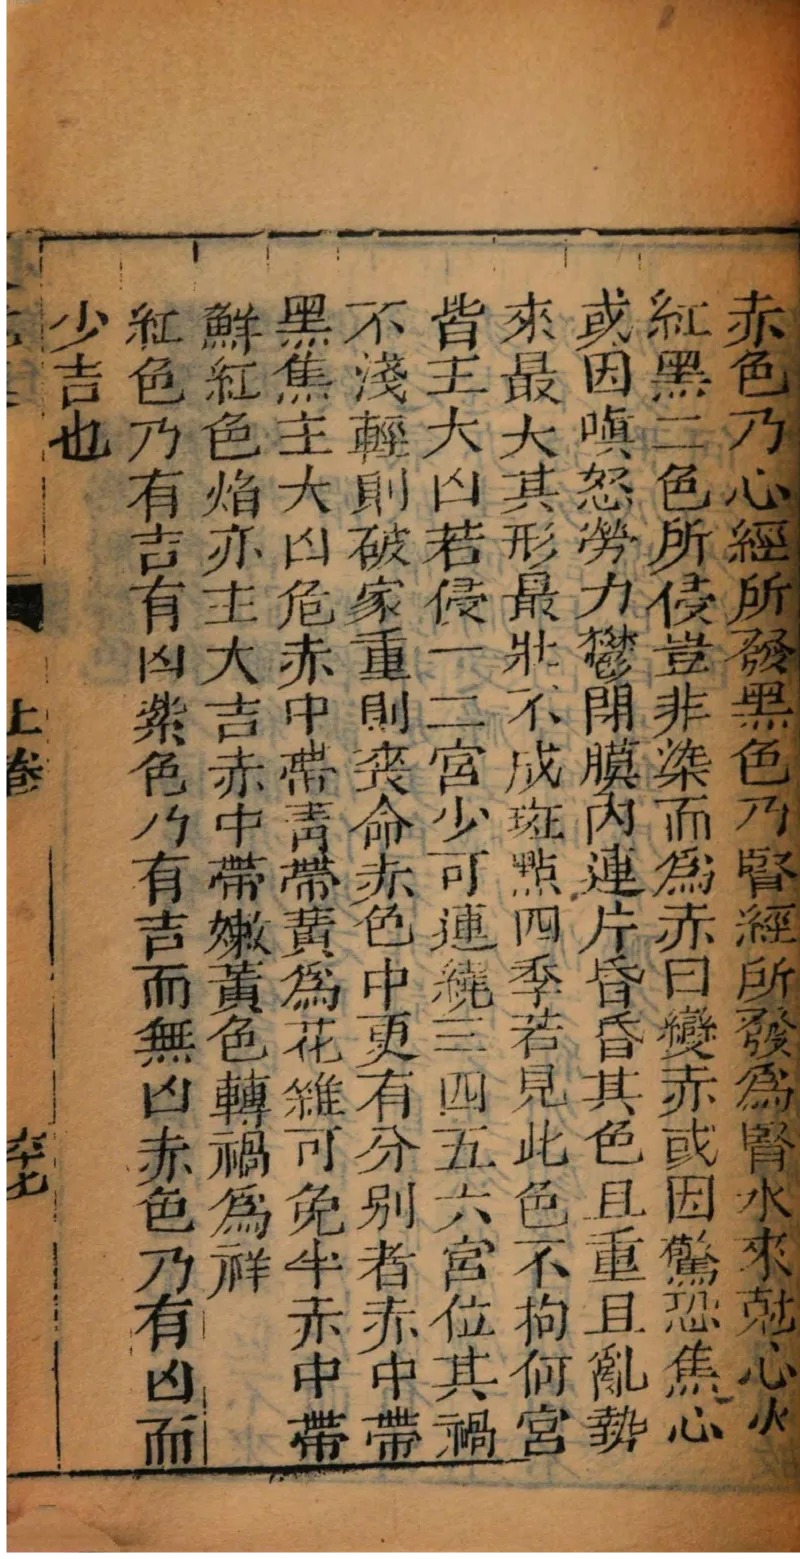 赤色乃心經所發黑色乃腎經所發爲腎水來尅心火
紅黑二色所侵豈非染而爲赤曰變赤或因驚恐焦心
或因嗔怒勞力鬱閉膜內連片昏昏其色且重且亂勢
來最大其形最壯不成斑點四季若見此色不拘何宮
皆主大凶若侵一二宮少可連繞三四五六宮位其禍
不淺輕則破家重則喪命赤色中更有分別者赤中帶
黑焦主大凶危赤中帶青帶黄爲花雜可免半赤中帶
鮮紅色焰亦主大吉赤中帶嫩黃色轉禍爲祥
紅色乃有吉有凶紫色乃有吉而無凶赤色乃有凶而
少吉也
上卷
六十七